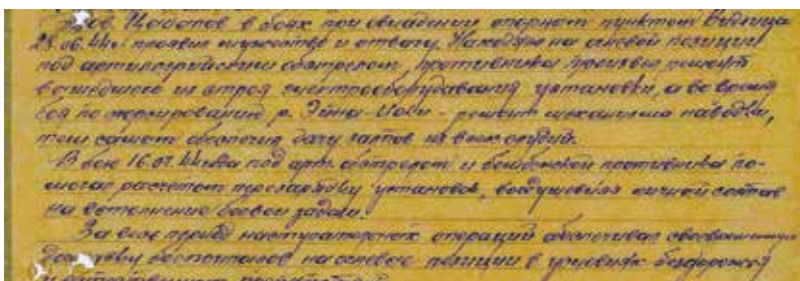 в боях при овладении опорным пунктом Видница
28.06.44г. проявил мужество и отвагу. Находясь на огневой позиции
под артиллерийским обстрелом, противника произвел ремонт
вышедшего из строя электрооборудования установки, а во время
боя по форсированию р. - ремонт механизма наводки,
тем самым обеспечил дачу залпов из всех орудий.
В бою 16.07.44 года под арт. обстрелом и бомбежкой противника по-
могал расчетам перезарядку установок, воодушевляя личный состав
на выполнение боевой задачи.
За весь период наступательных операций обеспечивал своевременную
доставку боеприпасов на огневые позиции в условиях бездорожья